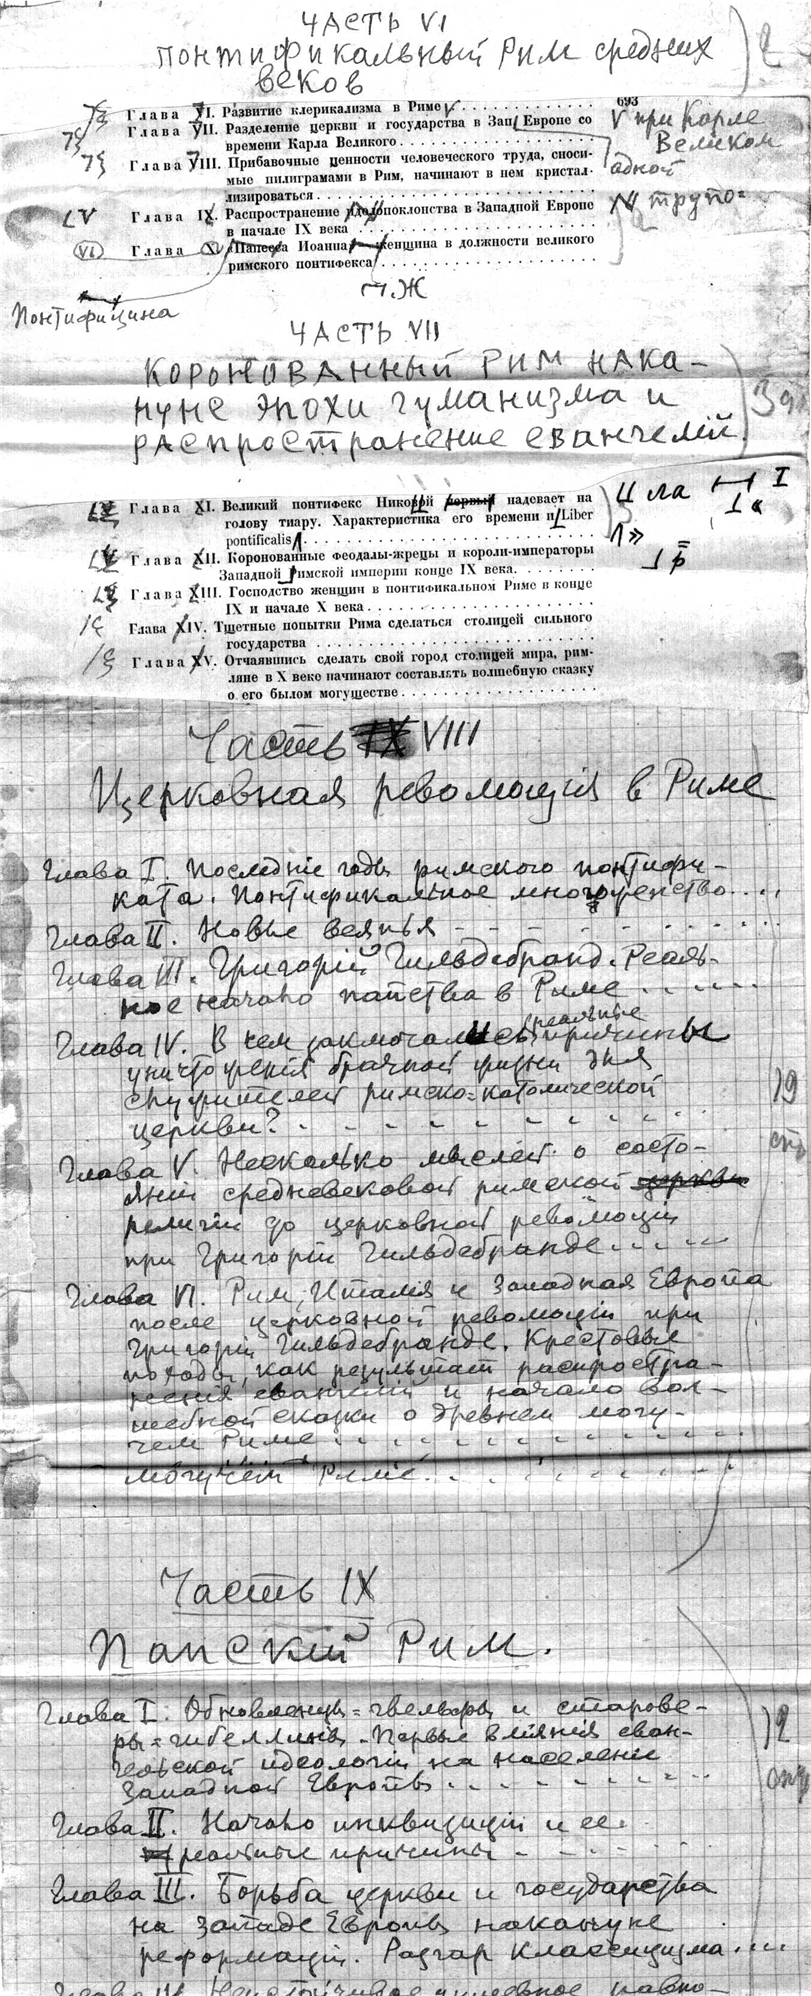 ЧАСТЬ VI
ПОНТИФИКАЛЬНЫЙ РИМ средних
веков
693
Глава VI. Развитие клерикализма в Риме
Глава VII. Разделение церкви и государства в Зап. Европе со
времени Карла Великого
V при Карле
Великом
Глава VIII. Прибавочные ценности человеческого труда, сноси-
мые пилиграмами в Рим, начинают в нем кристал-
лизироваться
Глава IX. Распространение идолопоклонства в Западной Европе
в начале IX века
трупо=
VI
Глава X. «Папесса Иоанна» — женщина в должности великого
римского понтифекса
Понтифицина
ЧАСТЬ VII
КОРОНОВАННЫЙ РИМ НАКА-
НУНЕ ЭПОХИ ГУМАНИЗМА И
РАСПРОСТРАНЕНИЕ ЕВАНГЕЛИЙ.
Глава XI. Великий понтифекс Николай первый надевает на
голову тиару. Характеристика его времени и Liber
pontificalis
Глава XII. Коронованные Феодалы-жрецы и короли-императоры
Западной Римской империи конце IX века
Глава XIII. Господство женщин в понтификальном Риме в конце
IX и начале X века
Глава XIV. Тщетные попытки Рима сделаться столицей сильного
государства
Глава XV. Отчаявшись сделать свой город столицей мира, рим-
ляне в X веке начинают составлять волшебную сказку
о его былом могуществе
Часть VIII
Церковная революцiя в Риме
Глава I. Последнiе годы римского понтифи-
ката. Понтификальное многоженство....
Глава II. Новые веянья
Глава III. Григорiй Гильдебранд. Реаль-
ное начало папства в Риме
реальные
Глава IV. В чем заключались причины
уничтоженiя брачной жизни для
служителей римско=католической
церкви?
Глава V. Несколько мыслей о состо-
янiи средневековой римской церкви
религiи до церковной революцiи
при Григорiи Гильдебранде
Глава VI. Рим, Италiя и Западная Европа
после церковной революцiи при
Григорiи Гильдебранде. Крестовые
походы, как результат распростра-
ненiя евангелiй и начало вол-
шебной сказки о древнем могу-
чем Риме
могучем Риме
Часть IX
Папскiй Рим.
Глава I. Обновленцы=гвельфы и старове-
ры=гибеллины. Первые влiянiя еван-
гельской идеологiи на населенiе
Западной Европы
Глава II. Начало инквизицiи и ее
реальные причины
Глава III. Борьба церкви и государства
на западе Европы накануне
реформацiи. Разгар Классицизма....